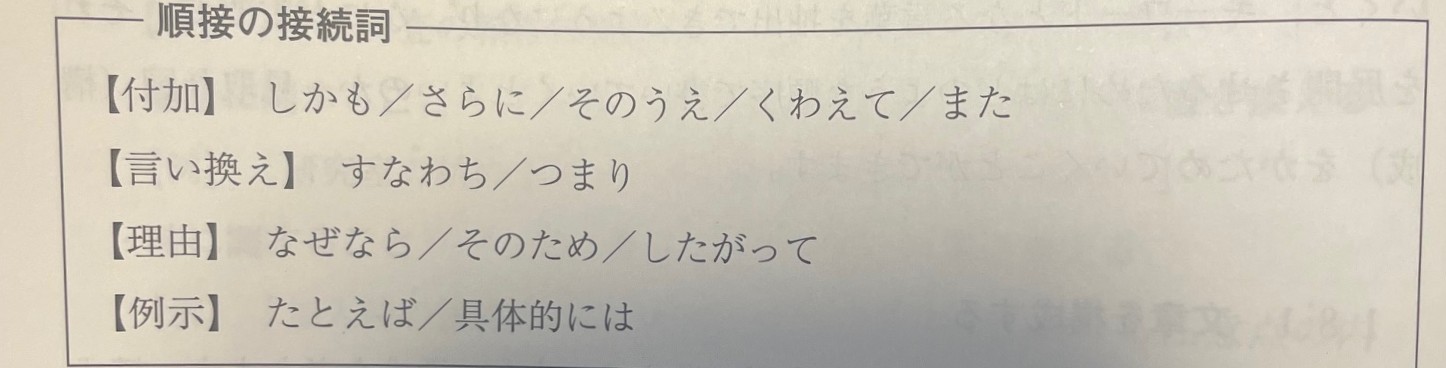 順接の接続詞
【付加】 しかも／さらに／そのうえ／くわえて／また
【言い換え】 すなわち／つまり
【理由】 なぜなら／そのため／したがって
【例示】 たとえば／具体的には